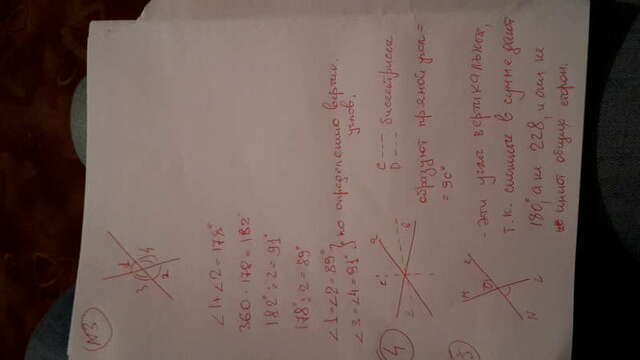 №3
1
3 4
2
∠1+∠2=178°
360-178=182
182°:2=91°
178°:2=89°
∠1=∠2=89° } по определению вертик.
∠3=∠4=91° } углов.
4
a
c
b
c --- биссектриса
D --- биссектриса
образуют прямой угол =
= 90°
5
M
N
L
- Эти углы вертикальные,
т.к. смежные в сумме дают
180°, а не 228, и они не
имеют общих сторон.